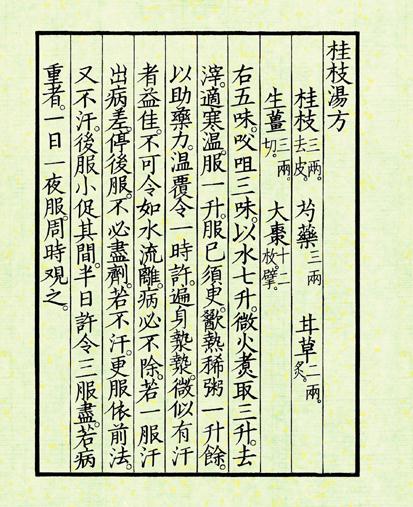 桂枝湯方
桂枝三兩。去皮。 芍藥三兩 甘草二兩。炙。
生薑三兩。切。 大棗十二枚。擘。
右五味。㕮咀三味。以水七升。微火煮取三升。去
滓。適寒温。服一升。服已須更。歠熱稀粥一升餘。
以助藥力。温覆令一時許。遍身漐漐。微似有汗
者益佳。不可令如水流離。病必不除。若一服汗
出病差。停後服。不必盡劑。若不汗。更服依前法。
又不汗。後服小促其間。半日許令三服盡。若病
重者。一日一夜服。周時観之。